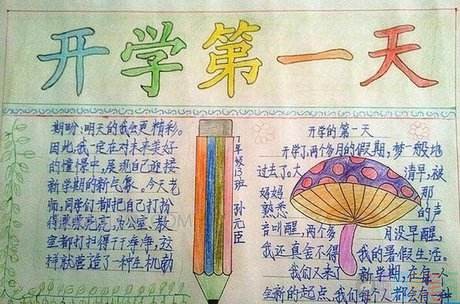 开学第一天
期盼,明天的我会更精彩。
因此,我一定在对未来美好
的憧憬中,展现自己迎接
新学期的新气象。今天老
师,同学们都把自己打扮
得漂漂亮亮,办公室、教
室都打扫得干干净净,这
样就营造了一种生机勃
年级13班 孙元臣
开学的第一天
开学了,两个多月的假期,梦一般地
过去了。大清早,被
妈妈那
熟悉的声
音叫醒,两个多月没早醒,
我还真舍不得我的暑假生活。
我们又来了新学期,在每一
个新的起点,我们每个人都会有一种